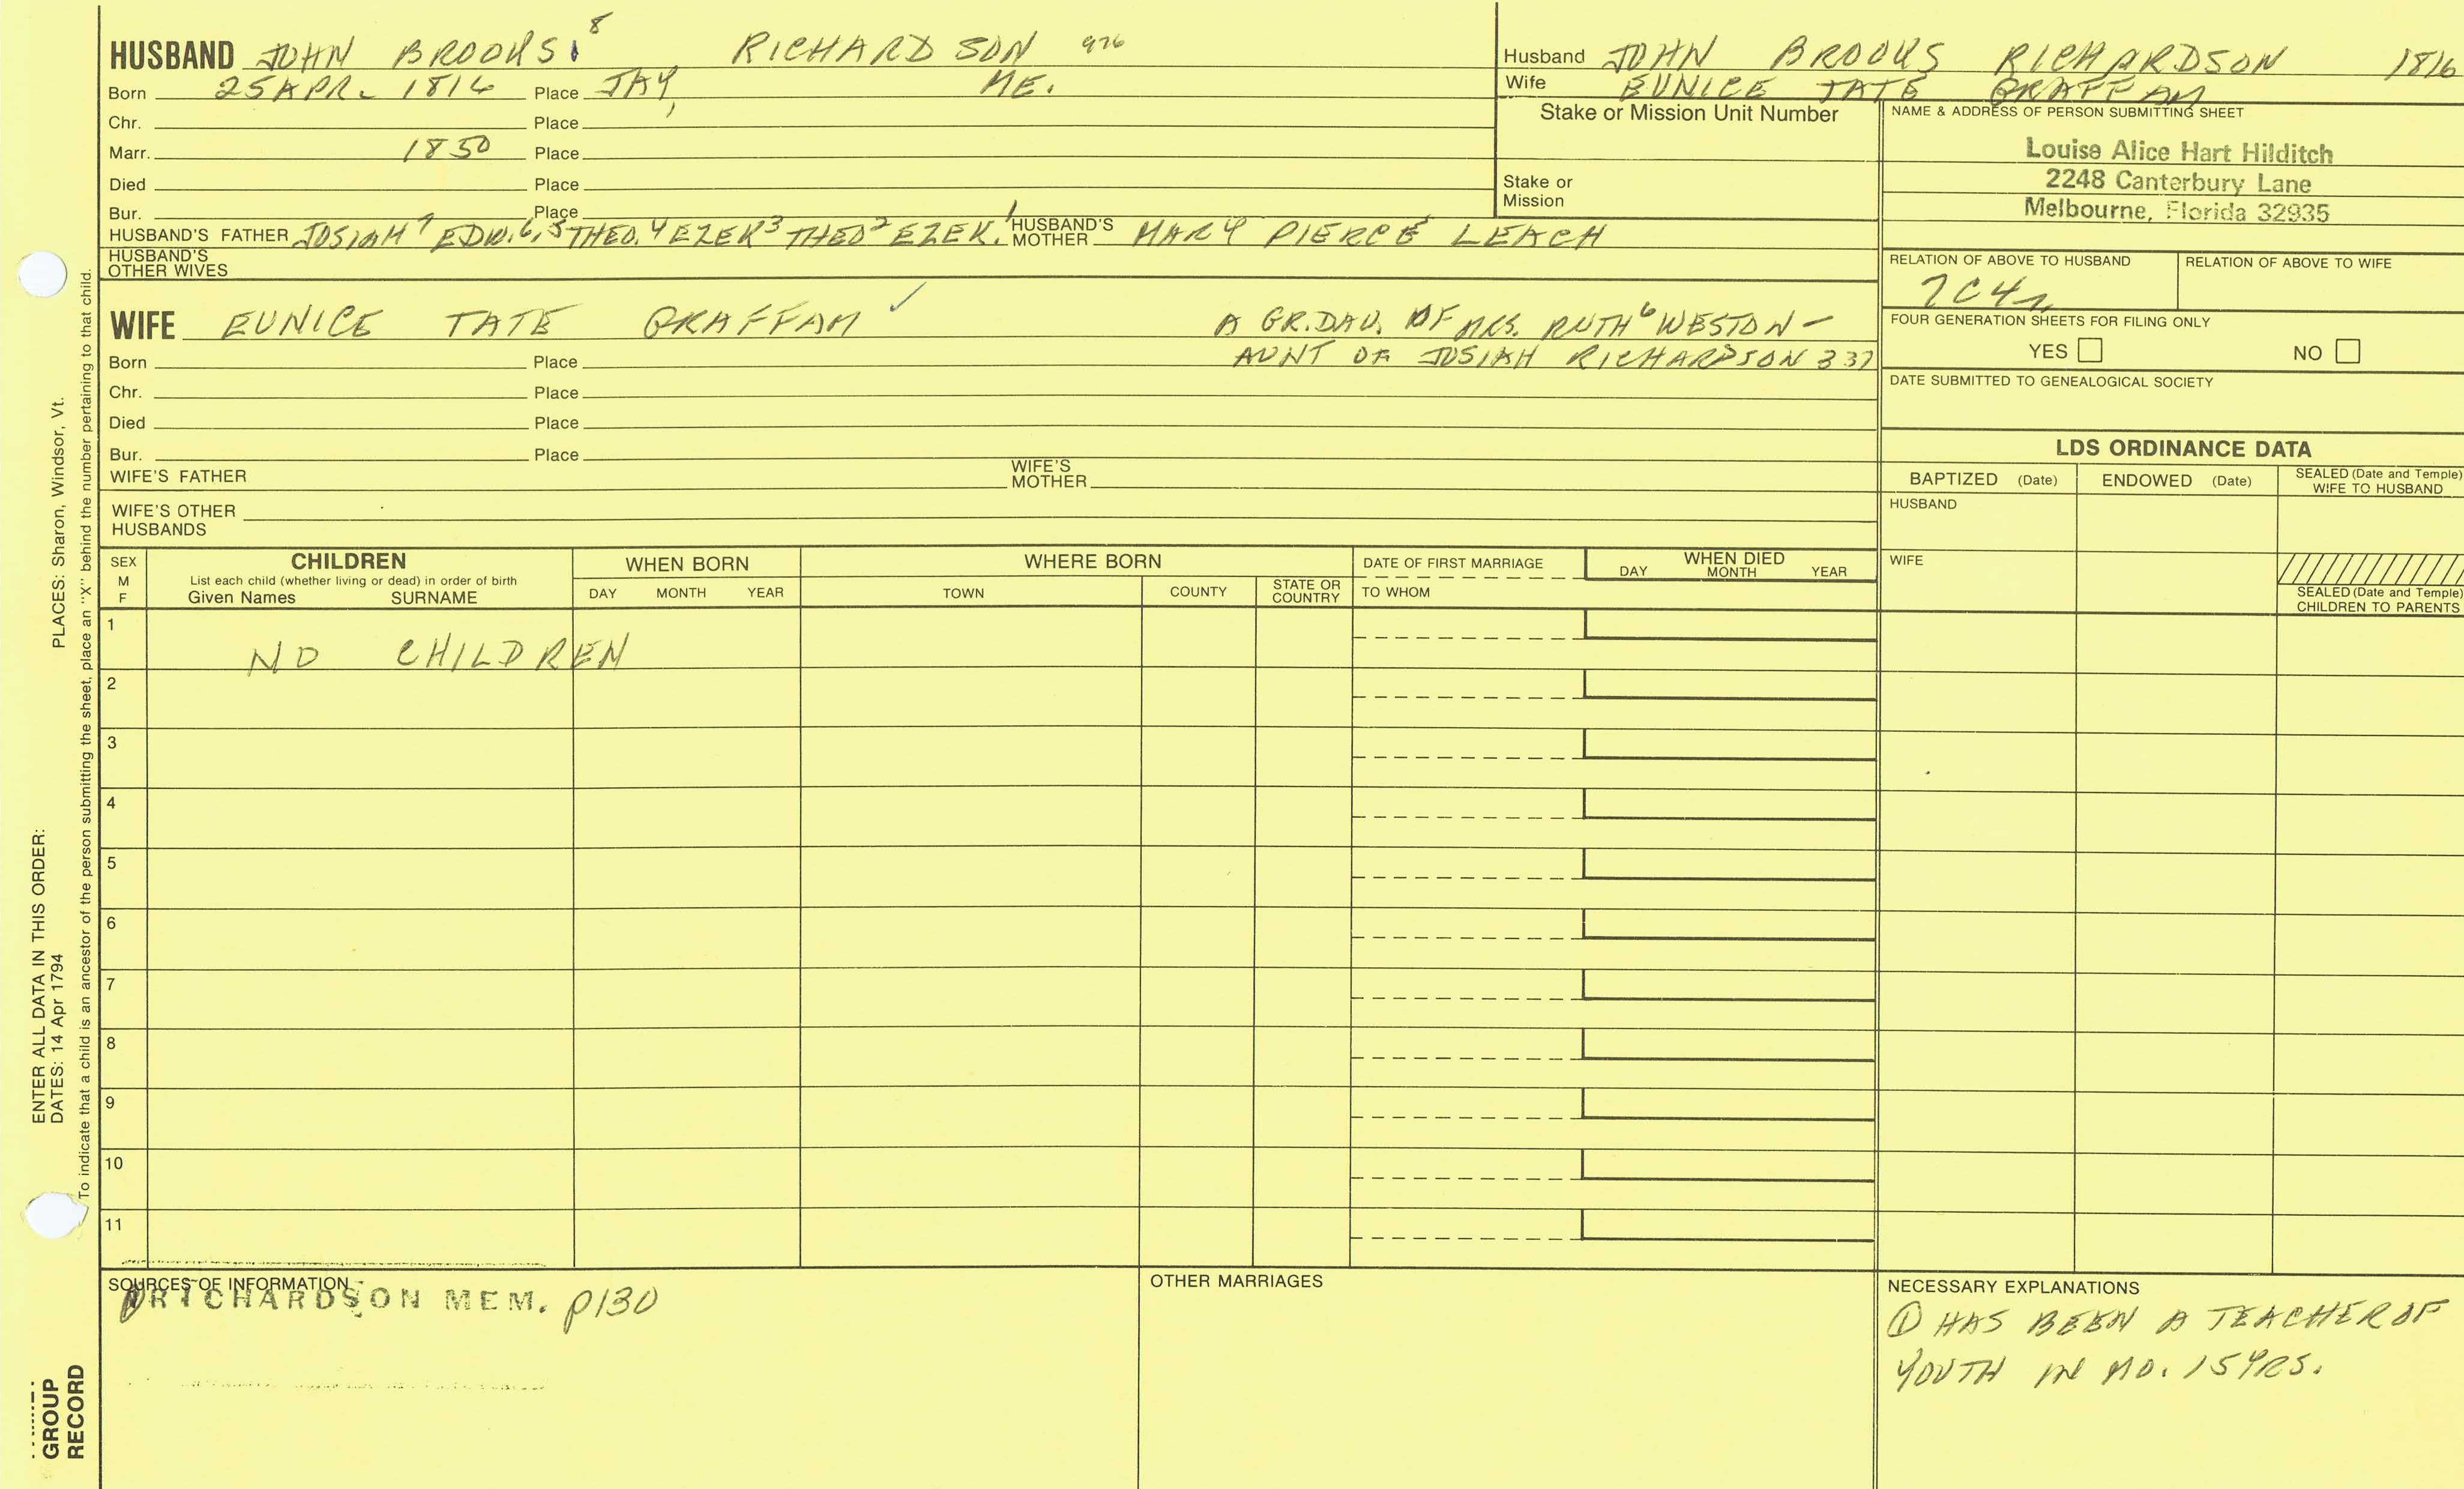 HUSBAND JOHN BROOKS 8 RICHARDSON 976
Born 25 APR. 1816 Place JAY, ME.
Chr. Place
Marr. 1850 Place
Died Place
Bur. Place
HUSBAND'S FATHER JOSIAH7 EDW.6,5 THEO.4 EZEK3 THEO2 EZEK.1 HUSBAND'S MOTHER MARY PIERCE LEACH
HUSBAND'S OTHER WIVES
Husband JOHN BROOKS RICHARDSON 1816
Wife EUNICE TATE GRAFFAM
Stake or Mission Unit Number
Stake or Mission
NAME & ADDRESS OF PERSON SUBMITTING SHEET
Louise Alice Hart Hilditch
2248 Canterbury Lane
Melbourne, Florida 32935
RELATION OF ABOVE TO HUSBAND RELATION OF ABOVE TO WIFE
7C4r
WIFE EUNICE TATE GRAFFAM ✓ A GR.DAU. OF MRS. RUTH6 WESTON -
AUNT OF JOSIAH RICHARDSON 337
Born Place
Chr. Place
Died Place
Bur. Place
WIFE'S FATHER WIFE'S MOTHER
WIFE'S OTHER HUSBANDS
FOUR GENERATION SHEETS FOR FILING ONLY
YES NO
DATE SUBMITTED TO GENEALOGICAL SOCIETY
LDS ORDINANCE DATA
BAPTIZED (Date) ENDOWED (Date) SEALED (Date and Temple) WIFE TO HUSBAND
HUSBAND
WIFE
SEALED (Date and Temple) CHILDREN TO PARENTS
SEX M F
CHILDREN
List each child (whether living or dead) in order of birth
Given Names SURNAME
WHEN BORN
DAY MONTH YEAR
WHERE BORN
TOWN COUNTY STATE OR COUNTRY
DATE OF FIRST MARRIAGE
TO WHOM
WHEN DIED
DAY MONTH YEAR
1 NO CHILDREN
2
3
4
5
6
7
8
9
10
11
SOURCES OF INFORMATION
RICHARDSON MEM. p130
OTHER MARRIAGES
NECESSARY EXPLANATIONS
① HAS BEEN A TEACHER OF
YOUTH IN MD. 15 YRS.
ENTER ALL DATA IN THIS ORDER:
DATES: 14 Apr 1794 PLACES: Sharon, Windsor, Vt.
To indicate that a child is an ancestor of the person submitting the sheet, place an "X" behind the number pertaining to that child.
GROUP
RECORD